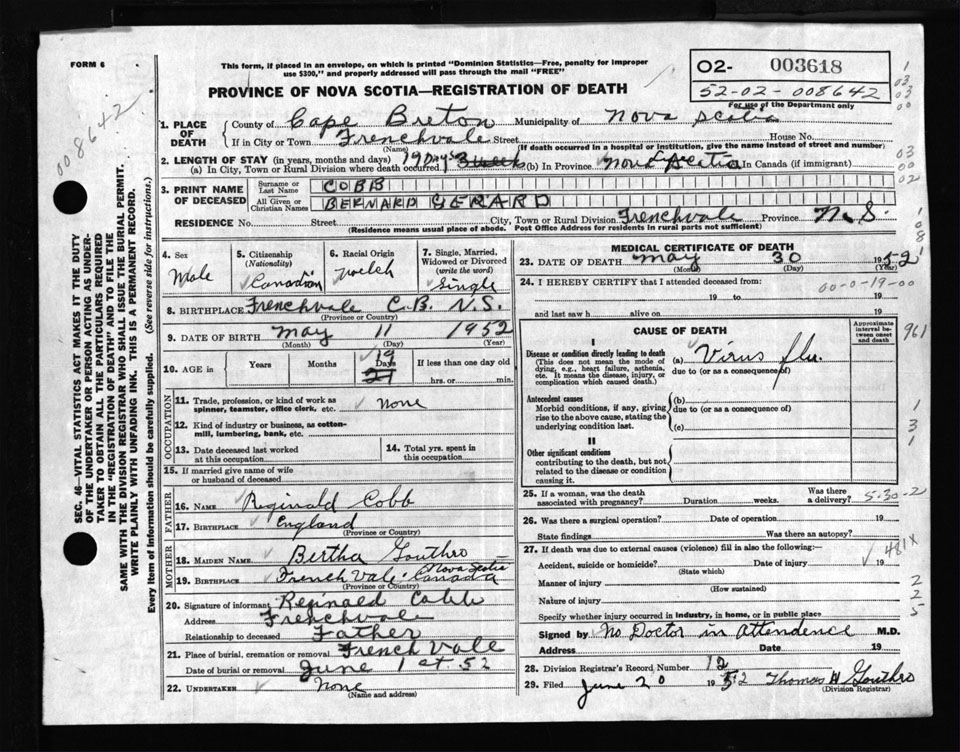 FORM 6
This form, if placed in an envelope, on which is printed "Dominion Statistics—Free, penalty for improper
use $300," and properly addressed will pass through the mail "FREE"
PROVINCE OF NOVA SCOTIA—REGISTRATION OF DEATH
02- 003618
52-02-008642
For use of the Department only
008642
1. PLACE OF DEATH
County of Cape Breton Municipality of Nova Scotia
If in City or Town Frenchvale Street House No.
(Name) (If death occurred in a hospital or institution, give the name instead of street and number)
2. LENGTH OF STAY (in years, months and days)
(a) In City, Town or Rural Division where death occurred 19 Days 3 weeks (b) In Province Nova Scotia In Canada (if immigrant)
3. PRINT NAME OF DECEASED
Surname or Last Name COBB
All Given or Christian Names BERNARD GERARD
RESIDENCE No. Street City, Town or Rural Division Frenchvale Province N.S.
(Residence means usual place of abode. Post Office Address for residents in rural parts not sufficient)
4. Sex Male
5. Citizenship (Nationality) Canadian
6. Racial Origin Welch
7. Single, Married, Widowed or Divorced (write the word) Single
8. BIRTHPLACE Frenchvale C.B. N.S.
(Province or Country)
9. DATE OF BIRTH May 11 1952
(Month) (Day) (Year)
10. AGE in Years Months Days 19 21 If less than one day old hrs. or min.
OCCUPATION
11. Trade, profession, or kind of work as spinner, teamster, office clerk, etc. None
12. Kind of industry or business, as cotton-mill, lumbering, bank, etc.
13. Date deceased last worked at this occupation
14. Total yrs. spent in this occupation
15. If married give name of wife or husband of deceased
FATHER
16. NAME Reginald Cobb
17. BIRTHPLACE England
(Province or Country)
MOTHER
18. MAIDEN NAME Bertha Gouthro
19. BIRTHPLACE French Vale Nova Scotia Canada
(Province or Country)
20. Signature of informant Reginald Cobb
Address Frenchvale
Relationship to deceased Father
21. Place of burial, cremation or removal French Vale
Date of burial or removal June 1st 52
22. UNDERTAKER None
(Name and address)
MEDICAL CERTIFICATE OF DEATH
23. DATE OF DEATH May 30 1952
(Month) (Day) (Year)
24. I HEREBY CERTIFY that I attended deceased from:
00-0-19-00
19 to 19
and last saw h alive on 19
CAUSE OF DEATH
Approximate interval between onset and death
I
Disease or condition directly leading to death
(This does not mean the mode of dying, e.g., heart failure, asthenia, etc. It means the disease, injury, or complication which caused death.)
(a) Virus flu.
due to (or as a consequence of)
Antecedent causes
Morbid conditions, if any, giving rise to the above cause, stating the underlying condition last.
(b)
due to (or as a consequence of)
(c)
II
Other significant conditions
contributing to the death, but not related to the disease or condition causing it.
25. If a woman, was the death associated with pregnancy? Duration weeks. Was there a delivery?
5-30-2
26. Was there a surgical operation? Date of operation 19
State findings Was there an autopsy?
27. If death was due to external causes (violence) fill in also the following:—
Accident, suicide or homicide? Date of injury 19
(State which)
481X
Manner of injury
(How sustained)
Nature of injury
Specify whether injury occurred in industry, in home, or in public place
Signed by No Doctor in Attendence M.D.
Address Date 19
28. Division Registrar's Record Number 12
29. Filed June 20 1952 Thomas H Gouthro
(Division Registrar)
SEC. 46—VITAL STATISTICS ACT MAKES IT THE DUTY
OF THE UNDERTAKER OR PERSON ACTING AS UNDER-
TAKER TO OBTAIN ALL THE PARTICULARS REQUIRED
IN THE "REGISTRATION OF DEATH" AND TO FILE THE
SAME WITH THE DIVISION REGISTRAR WHO SHALL ISSUE THE BURIAL PERMIT.
WRITE PLAINLY WITH UNFADING INK. THIS IS A PERMANENT RECORD.
Every item of information should be carefully supplied. (See reverse side for instructions.)
1
03
03
00
03
00
02
1
08
961
1
3
1
2
2
5